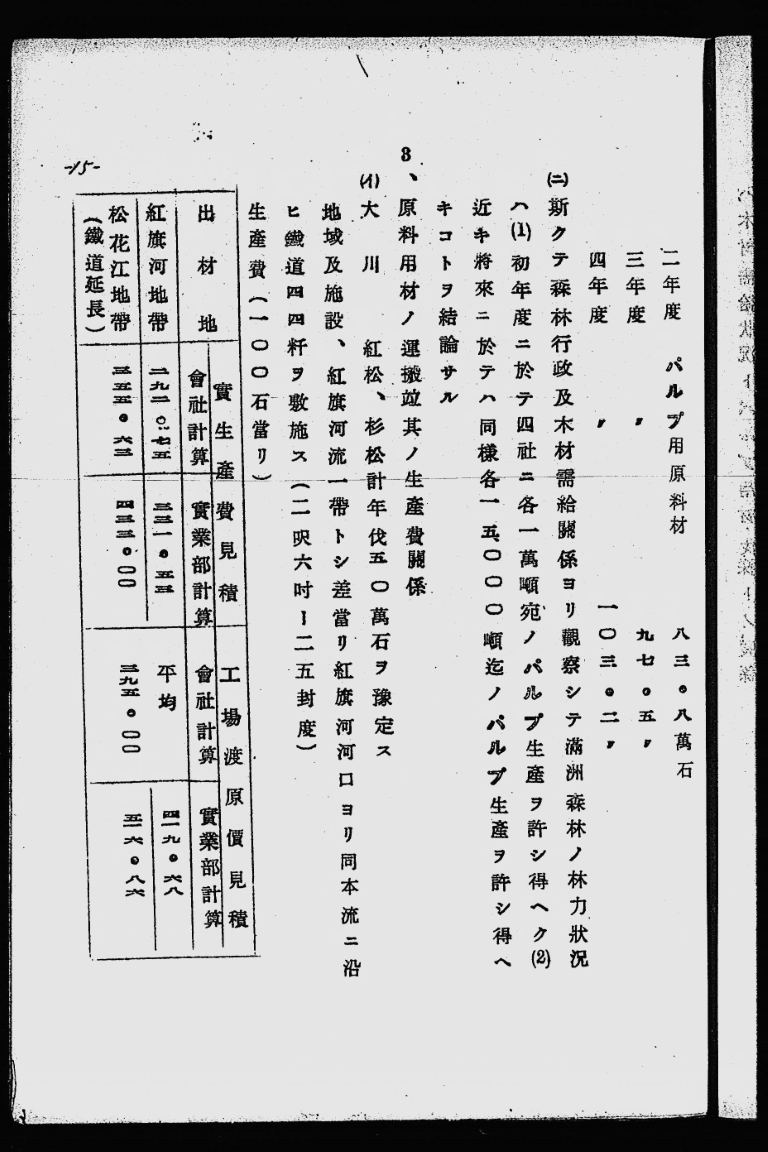 二年度 パルプ用原料材 八三。八萬石
三年度 〃 九七。五〃
四年度 〃 一〇三。二〃
㈡斯クテ森林行政及木材需給關係ヨリ觀察シテ滿洲森林ノ林力狀況
ハ(1)初年度ニ於テ四社ニ各一萬噸宛ノパルプ生產ヲ許シ得ヘク(2)
近キ將來ニ於テハ同樣各一五、〇〇〇噸迄ノパルプ生產ヲ許シ得ヘ
キコトヲ結論サル
3、原料用材ノ運搬竝其ノ生產費關係
(イ)大川 紅松、杉松計年伐五〇萬石ヲ豫定ス
地域及施設、紅旗河流一帶トシ差當リ紅旗河河口ヨリ同本流ニ沿
ヒ鐵道四四粁ヲ敷施ス(二呎六吋ー二五封度)
生產費(一〇〇石當リ)
實生產費見積 工場渡原價見積
出材地 會社計算 實業部計算 會社計算 實業部計算
紅旗河地帶 二九二。七五 三三一。五三 平均 四一九。六八
松花江地帶 三五五。六三 四三三。〇〇 三九五。〇〇 五一六。八六
(鐵道延長)
-15-